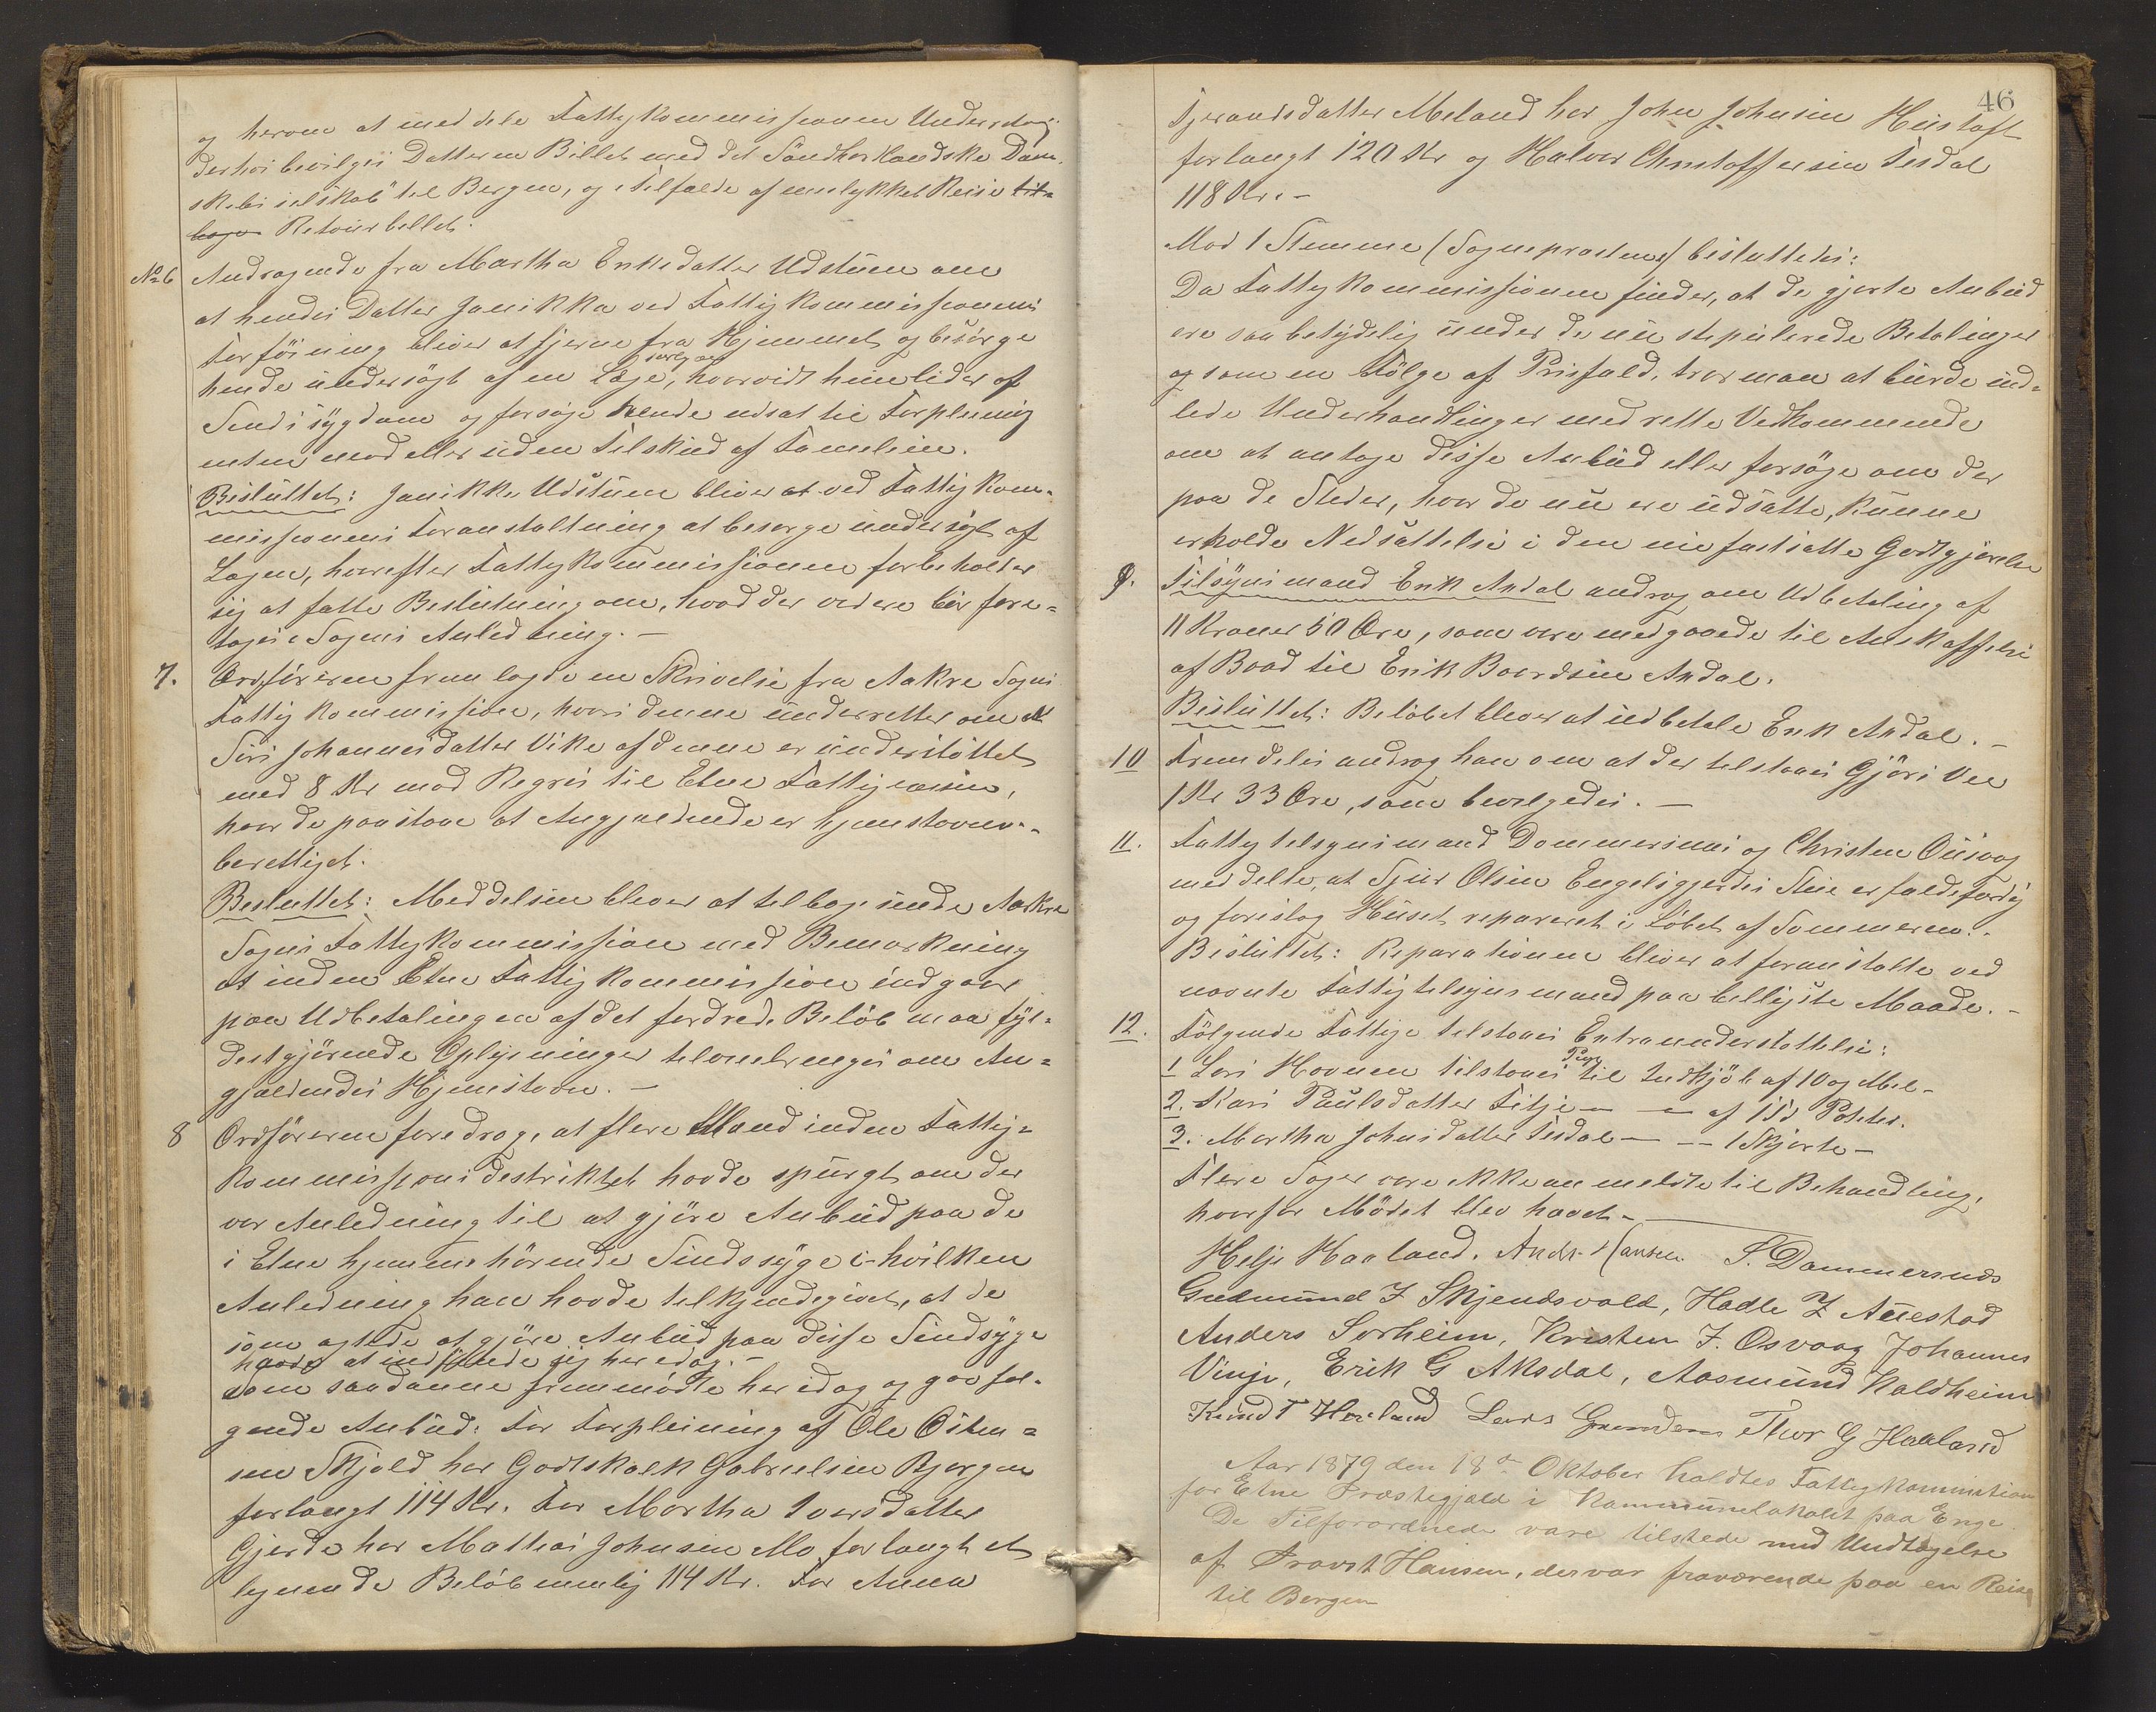 og herom at meddele Fattigkommissionen Underretning
derhos bevilges Datteren Billet med det Söndhorlandske Dam-
skibsselskab til Bergen, og i Tilfælde af mislykket Reise til-
bage Retourbillet.
No 6 Andragende fra Martha Eriksdatter Udstuen om
at hendes Datter Janikka ved Fattigkommissionens
Forföining bliver at fjerne fra Hjemmet og besörge
hende undersögt af en Læge, hvorvidt hun lider af
Sindssygdom og forsöge hende udsat til Forpleining
enten med eller uden Tilskud af Familien.
Besluttet: Janikke Udstuen bliver at ved Fattigkom-
missionens Foranstaltning at besørge undersögt af
Lægen, hvorefter Fattigkommissionen forbeholder
sig at fatte Beslutning om, hvad der videre bör fore-
tages i Sagens Anledning. -
7. Ordföreren fremlagde en Skrivelse fra Aakre Sogns
Fattigkommission, hvori denne underretter om at
Siri Johannesdatter Vike af denne er understöttet
med 8 Kr mod Regres til Etne Fattigvæsen,
hvor de paastaar at Angjældende er hjemstavns-
berettiget.
Besluttet: Meddelsen bliver at tilbagesende Aakre
Sogns Fattigkommission med Bemærkning
at inden Etne Fattigkommission indgaar
paa Udbetalingen af det fordrede Belöb maa fyl-
destgjörende Oplysninger tilveiebringes om An-
gjældendes Hjemstavn. -
8 Ordföreren foredrog, at flere Mænd inden Fattig-
kommissionsdistriktet havde spurgt om der
var Anledning til at gjöre Anbud paa de
i Etne hjemmehörende Sindssyge i hvilken
Anledning han havde tilkjendegivet, at de
som agtede at gjöre Anbud paa disse Sindsyge
havde at indfinde sig her idag. -
Som saadanne fremmödte her idag og gav föl-
gende Anbud: For Forpleining af Ole Osten-
sen Skjold har Godtskalk Gabrielsen Bjørgen
forlangt 114 Kr. For Martha Iversdatter
Gjerde har Mathias Johnsen Mo forlangt et
lignende Belöb nemlig 114 Kr. For Anna
46
Tjerandsdatter Meland har John Johnsen Hustoft
forlangt 120 Kr og Halvor Christoffersen Tesdal
118 Kr. -
Mod 1 Stemme (Sognepræstens) besluttedes:
Da Fattigkommissionen finder, at de gjorte Anbud
ere saa betydelig under de nu stipulerede Betalinger
og som en Fölge af Prisfald, tror man at burde ind-
lede Underhandlinger med rette Vedkommende
om at antage disse Anbud eller forsöge om der
paa de Steder, hvor de nu ere udsatte, kunne
erholde Nedsættelse i den nu fastsatte Godtgjörelse
9. Tilsynsmand Erik Axdal androg om Udbetaling af
11 Kroner 50 Öre, som vare medgaaede til Anskaffelse
af Baad til Erik Baardsen Axdal.
Besluttet: Belöbet bliver at udbetale Erik Axdal. -
10 Fremdeles androg han om at der tilstaaes Gjöri Vee
1 Kr 33 Öre, som bevilgedes. -
11. Fattigtilsynsmænd Dommersnes og Christen Osvaag
meddelte, at Sjur Olsen Engelsgjerdes Stue er faldefærdig
og foreslog Huset repareret i Löbet af Sommeren. -
Besluttet: Reparationen bliver at foranstalte ved
nævnte Fattigtilsynsmænd paa billigste Maade. -
12. Fölgende Fattige tilstaaes Extraunderstöttelse:
1 Lars Hovnen tilstaaes Penge til Indkjöb af 10 og Mel -
2. Kari Paulsdatter Fitje - - af 1 Td Poteter.
3. Martha Johnsdatter Tesdal - - - 1 Skjorte -
Flere Sager vare ikke anmeldte til Behandling,
hvorfor Mödet blev hævet. -
Helje Haaland. Andr. Hansen S. Dommersnes
Gudmund J Skjendsvold, Hadle Z Auestad
Anders Sørheim, Kristen J. Osvaag Johannes
Vinje, Erik G Aksdal, Aasmund Kaldheim
Knud T Haaland Lars Grinden Thor G Haaland
Aar 1879 den 18de Oktober holdtes Fattigkommission
for Etne Præstegjæld i Kommunelokalet paa Enge.
De Tilforordnede vare tilstede med Undtagelse
af Provst Hansen, der var fraværende paa en Reise
til Bergen